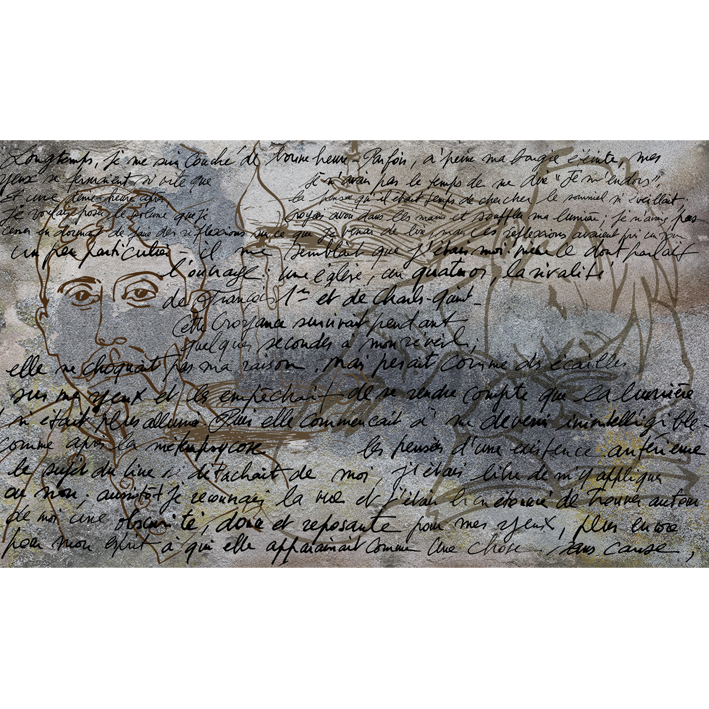 Longtemps, je me suis couché de bonne heure - Parfois, à peine ma bougie éteinte, mes
yeux se fermaient si vite que je n'avais pas le temps de me dire "Je m'endors"
et une demi heure après la pensée qu'il était temps de chercher le sommeil m'éveillait,
je voulais poser le volume que je croyais avoir dans les mains et souffler ma lumière; je n'avais pas
cessé en dormant de faire des réflexions sur ce que je venais de lire, mais ces réflexions avaient pris un tour
un peu particulier il me semblait que j'étais moi même ce dont parlait
l'ouvrage: une église, un quatuor, la rivalité
de François 1er et de Charles-Quint-
cette croyance survivait pendant
quelques secondes à mon réveil,
elle ne choquait pas ma raison, mais pesait comme des écailles
sur mes yeux et les empêchait de se rendre compte que la lumière
n'était plus allumée Puis elle commençait à me devenir inintelligible-
comme après la métempsycose les pensées d'une existence antérieure
le sujet du livre se détachait de moi, j'étais libre de m'y appliquer
ou non; aussitôt je recouvrais la vue et j'étais bien étonné de trouver autour
de moi une obscurité, douce et reposante pour mes yeux, plus encore
pour mon esprit à qui elle apparaissait comme une chose sans cause,